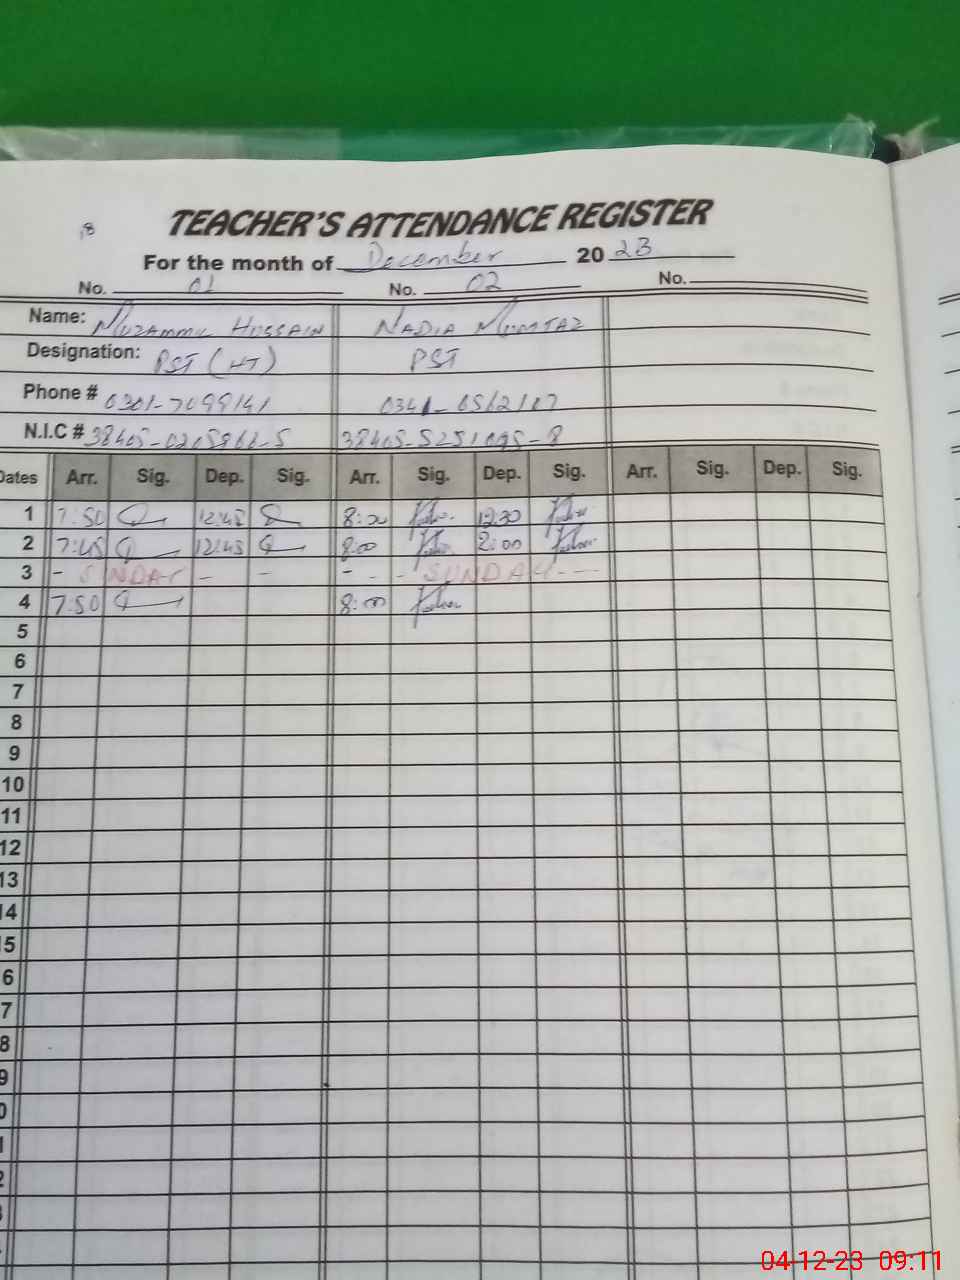 TEACHER'S ATTENDANCE REGISTER
For the month of December 2023
No. 01 No. 02 No.
Name: Muzammil Hussain Nadia Mumtaz
Designation: PST (HT) PST
Phone # 0301-7099141
N.I.C #
Dates Arr. Sig. Dep. Sig. Arr. Sig. Dep. Sig. Arr. Sig. Dep. Sig.
1 7:50 12:45 8:00 12:30
2 7:45 12:45 8:00 2:00
3 - SUNDAY - - - - - SUNDAY ---
4 7:50 8:00
5
6
7
8
9
10
11
12
13
14
5
6
7
8
9
0
1
2
04-12-23 09:11